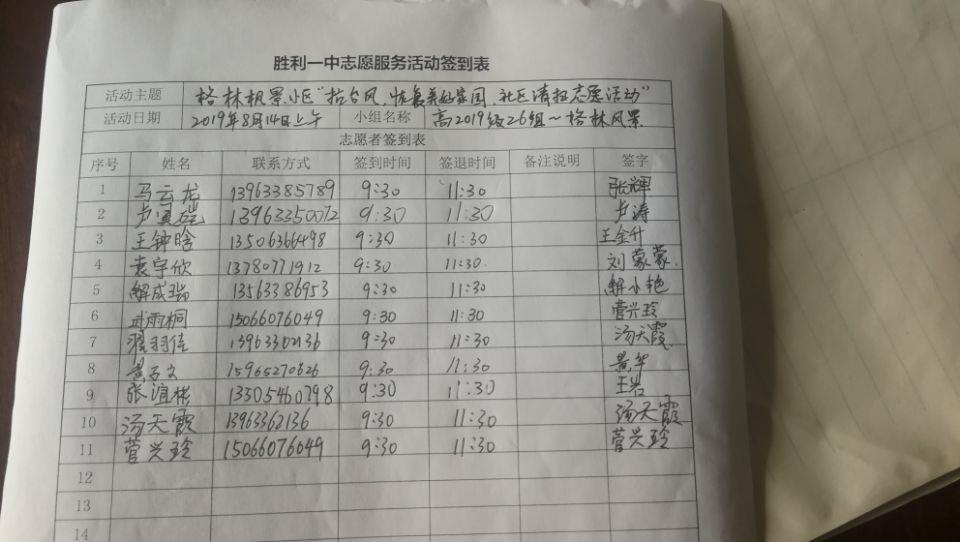 胜利一中志愿服务活动签到表
活动主题 格林枫景小区"抗台风,恢复美好家园,社区清扫志愿活动"
活动日期 2019年8月14日上午 小组名称 高2019级26组~格林风景
志愿者签到表
序号 姓名 联系方式 签到时间 签退时间 备注说明 签字
1 马云龙 13963385789 9:30 11:30 张辉
2 卢 13963350072 9:30 11:30 卢涛
3 王钟晗 13506366498 9:30 11:30 王金升
4 袁宇欣 13780771912 9:30 11:30. 刘蒙蒙.
5 解成瑞 13563386953 9:30 11:30 解小艳
6 武雨桐 15066076049 9:30 11:30 菅兴玲
7 翟羽佳 9:30 11:30 汤天霞
8 黄 15965270626 9:30 11:30 黄华
9 张谊彬 13305460798 9:30 11:30 王岩
10 汤天霞 13963362136 9:30 11:30 汤天霞
11 菅兴玲 15066076049 9:30 11:30 菅兴玲
12
13
14